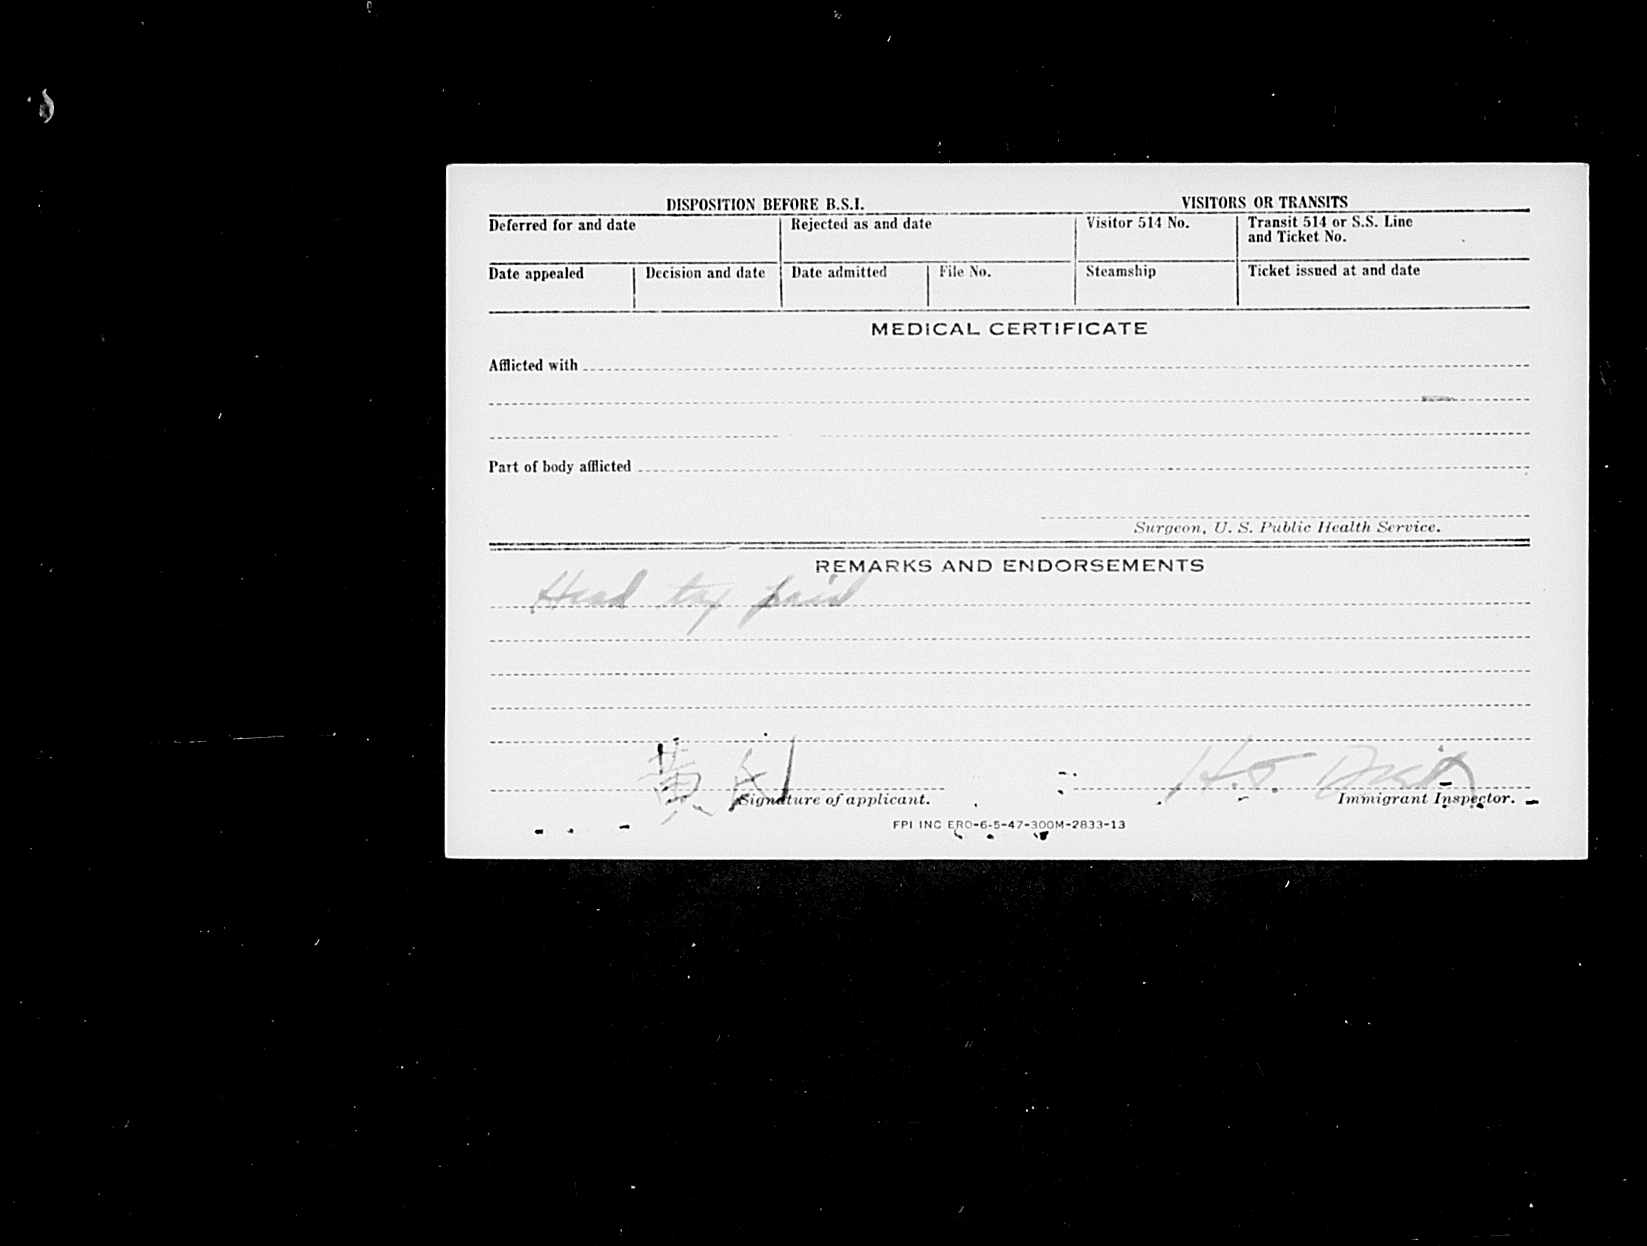 DISPOSITION BEFORE B.S.I. VISITORS OR TRANSITS
Deferred for and date Rejected as and date Visitor 514 No. Transit 514 or S.S. Line
and Ticket No.
Date appealed Decision and date Date admitted File No. Steamship Ticket issued at and date
MEDICAL CERTIFICATE
Afflicted with
Part of body afflicted
Surgeon, U. S. Public Health Service.
REMARKS AND ENDORSEMENTS
Head tax paid
黃 H.J.
Signature of applicant. Immigrant Inspector.
FPI INC ERO-6-5-47-300M-2833-13